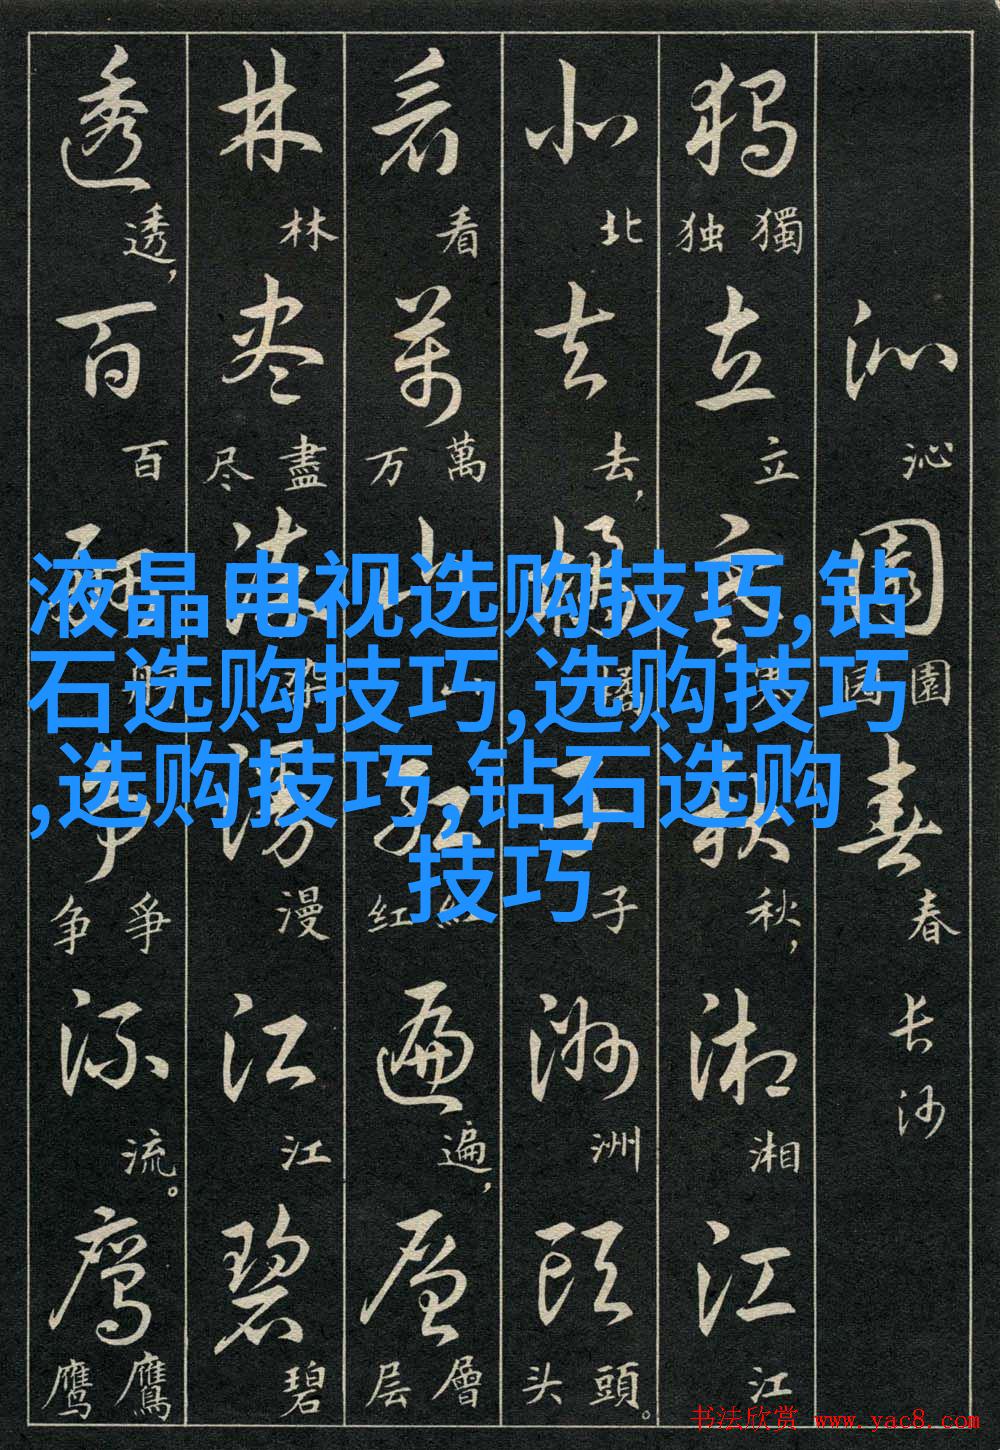 液晶电视选购技巧,钻
石选购技巧,选购技巧
,选购技巧,钻石选购
技巧
沁 沁 園 园 園 春 春 长沙
独 独 獨 立 立 寒 秋 秋, 湘 湘 江 江
北 北 去 去, 橘 子 子 洲 洲 頭 头 頭。
看 看 萬 万 萬 山 山 红 红 遍 遍, 層 层 層
林 林 尽 尽 盡 染 染 漫 漫 江 江 碧 碧
透 透, 百 百 舸 舸 争 争 爭 流 流。 鹰 鹰 鷹
书法欣赏 www.yac8.com